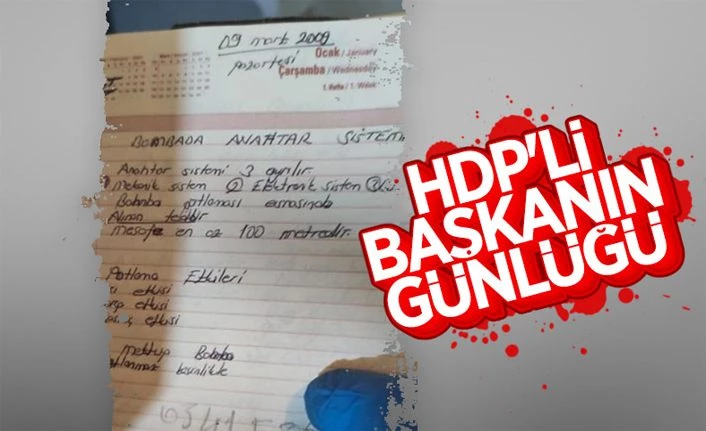 09 mart 2009
Ocak / January
pazartesi
Çarşamba / Wednesday
1. Hafta / 1. Week
BOMBADA ANAHTAR SİSTEM
Anahtar sistemi 3 ayrılır
Mekanik sistem ② Elektronik sistem ③
Bomba patlaması esnasında
Alınan tedbir
mesafe en az 100 metredir.
Patlama Etkileri
etkisi
etkisi
etkisi
mektup Bomba
kesinlikle
HDP'Lİ
BAŞKANIN
GÜNLÜĞÜ